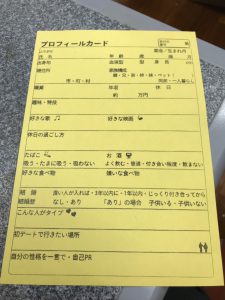 プロフィールカード
氏名 年齢 歳
出身地 血液型 型 身長
現住所 家族構成
市・町・村
職業 年収 休日
約 万円
趣味・特技
好きな歌 好きな映画
休日の過ごし方
たばこ お酒
吸う・たまに吸う・吸わない よく飲む・普通・付き合い程度・飲まない
好きな食べ物 嫌いな食べ物
結婚 良い人が入れば・3年以内に・1年以内・じっくり付き合ってから
結婚歴 なし・あり 「あり」の場合 子供いる・子供いない
こんな人がタイプ
初デートで行きたい場所
自分の性格を一言で・自己PR